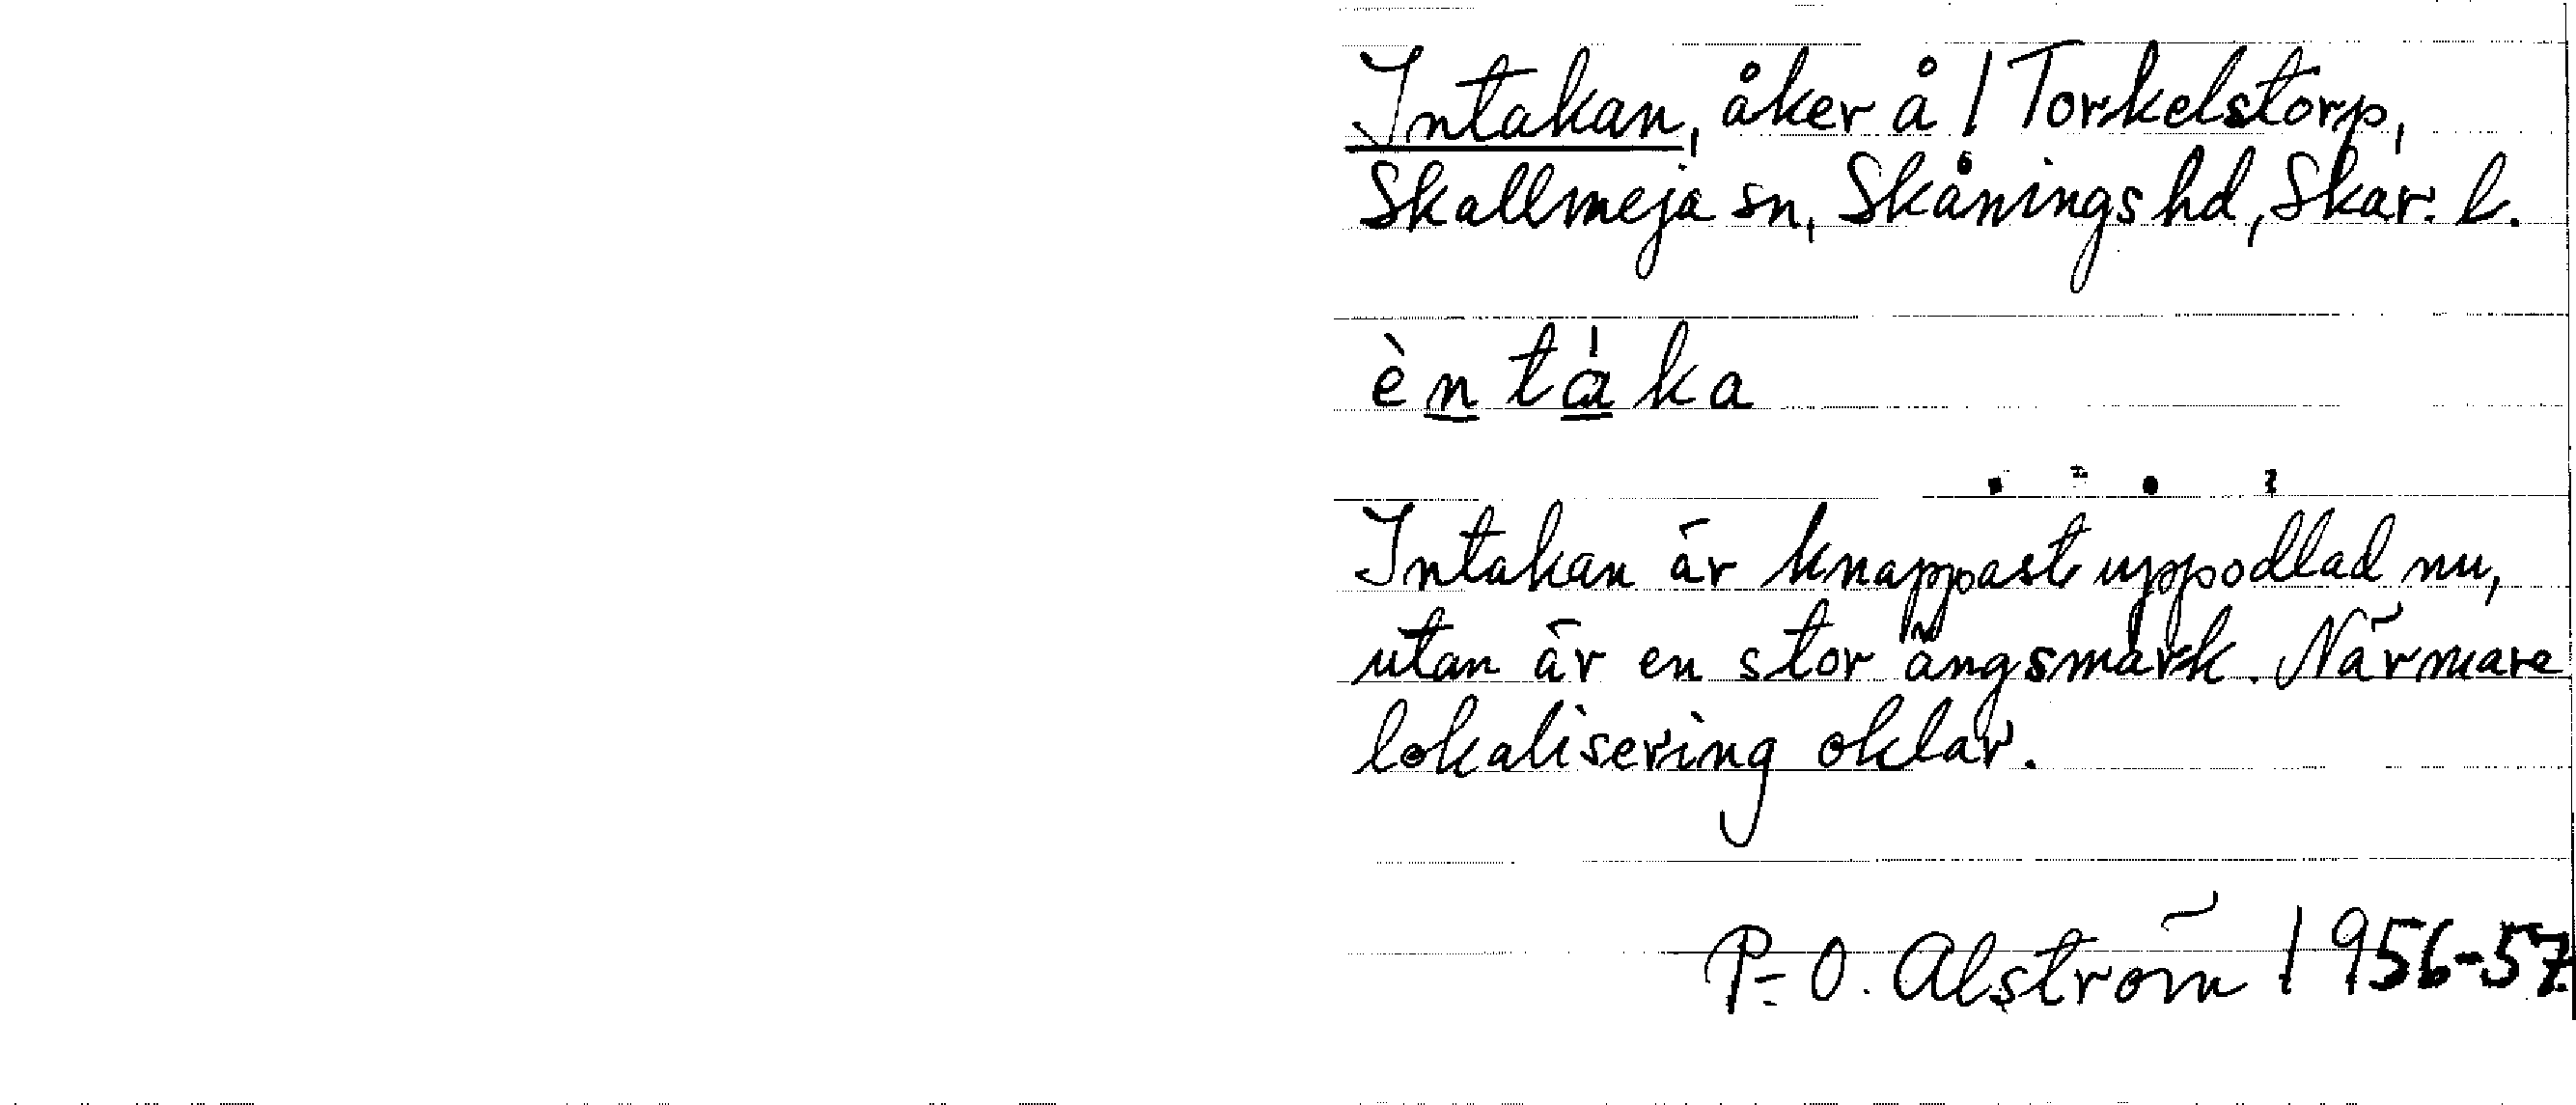 Intakan, åker å 1 Torkelstorp,
Skallmeja sn, Skånings hd, Skar. l.
èntáka
Intakan är knappast uppodlad nu,
utan är en stor ängsmark. Närmare
lokalisering oklar.
P-O. Alström 1956-57.